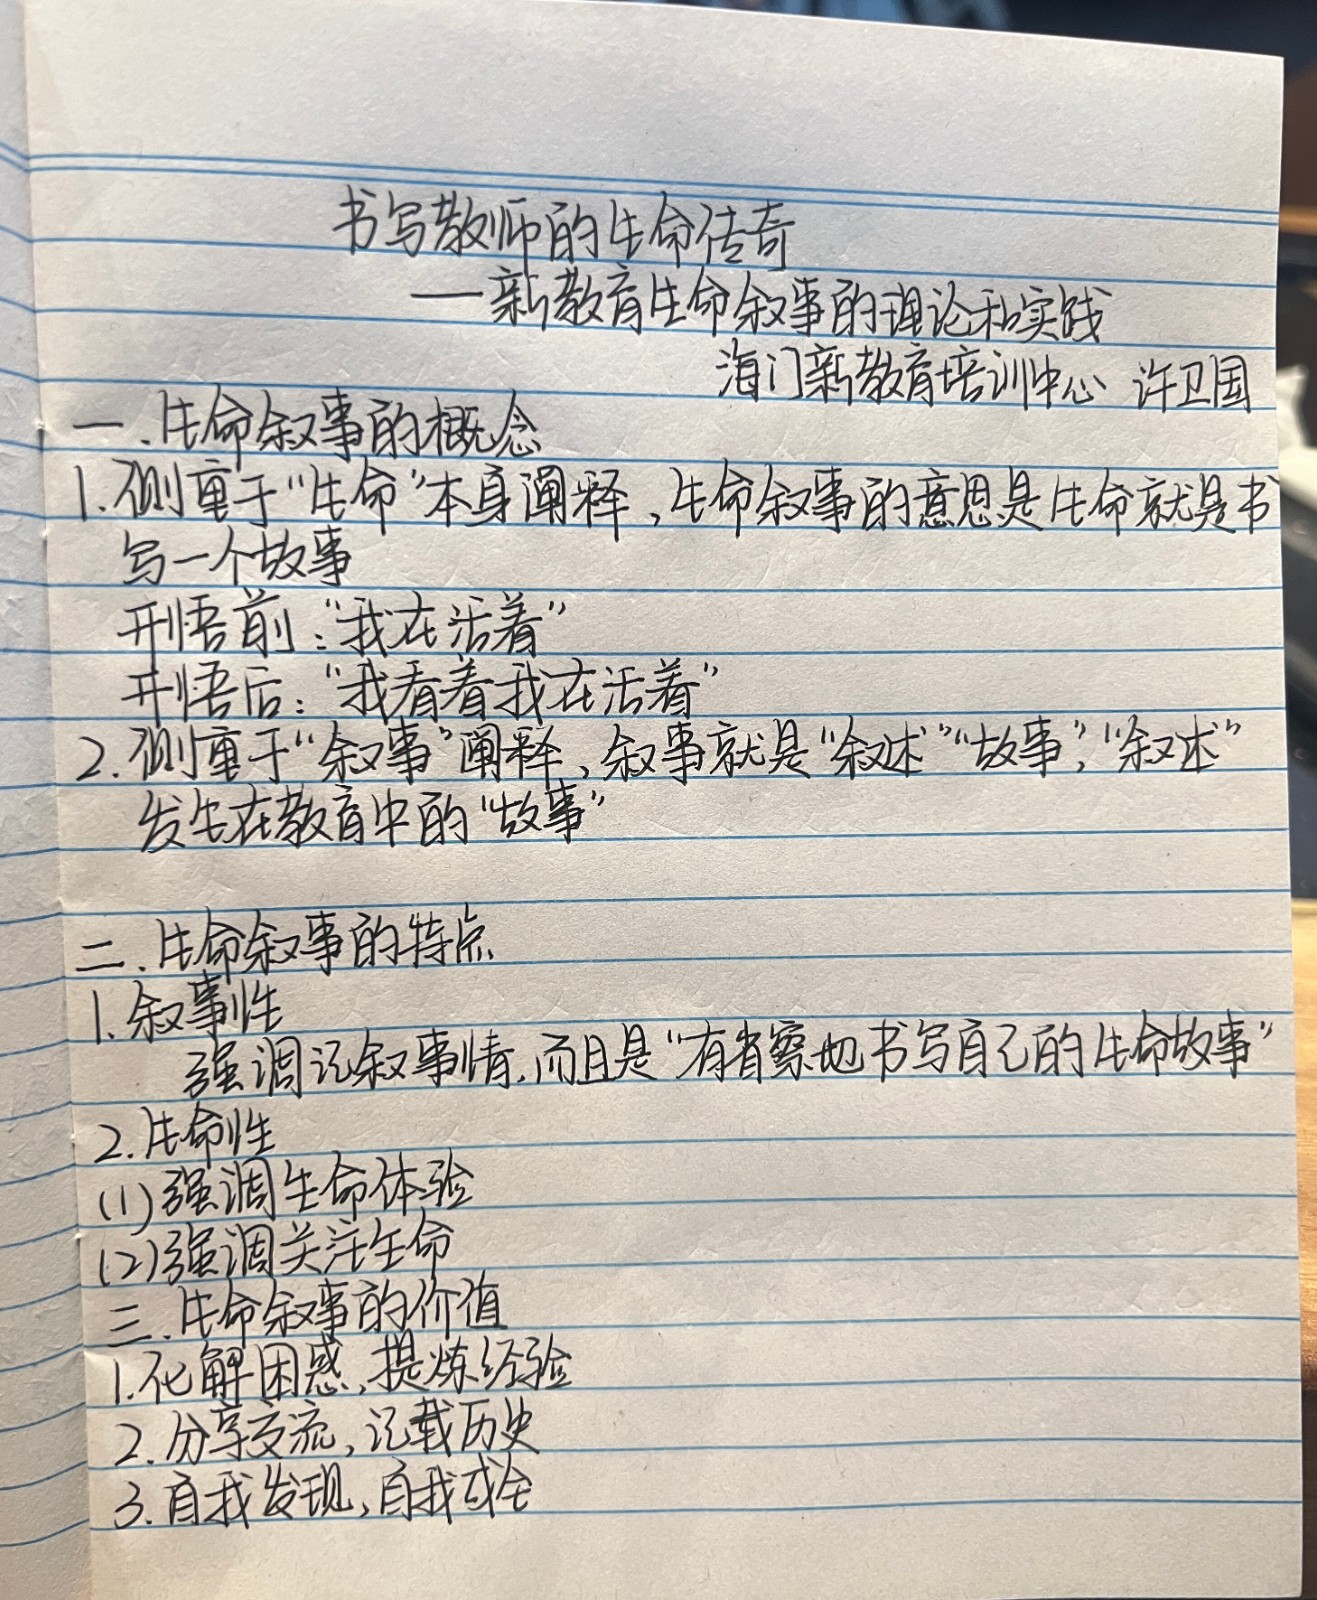 书写教师的生命传奇
——新教育生命叙事的理论和实践
海门新教育培训中心 许卫国
一、生命叙事的概念
1.侧重于“生命”本身阐释,生命叙事的意思是生命就是书
写一个故事
开悟前:“我在活着”
开悟后:“我看着我在活着”
2.侧重于“叙事”阐释,叙事就是“叙述”“故事”,“叙述”
发生在教育中的“故事”
二、生命叙事的特点
1.叙事性
强调记叙事情,而且是“有省察地书写自己的生命故事”
2.生命性
(1)强调生命体验
(2)强调关注生命
三、生命叙事的价值
1.化解困惑,提炼经验
2.分享交流,记载历史
3.自我发现,自我成全